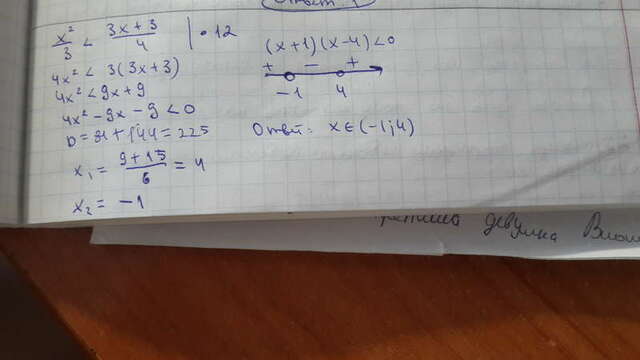 x²/3 < 3x+3/4 | · 12
4x² < 3(3x+3)
4x² < 9x + 9
4x² - 9x - 9 < 0
D = 81 + 144 = 225
x₁ = 9+15/6 = 4
x₂ = -1
(x+1)(x-4) < 0
+ - +
-1 4
Ответ: x ∈ (-1; 4)